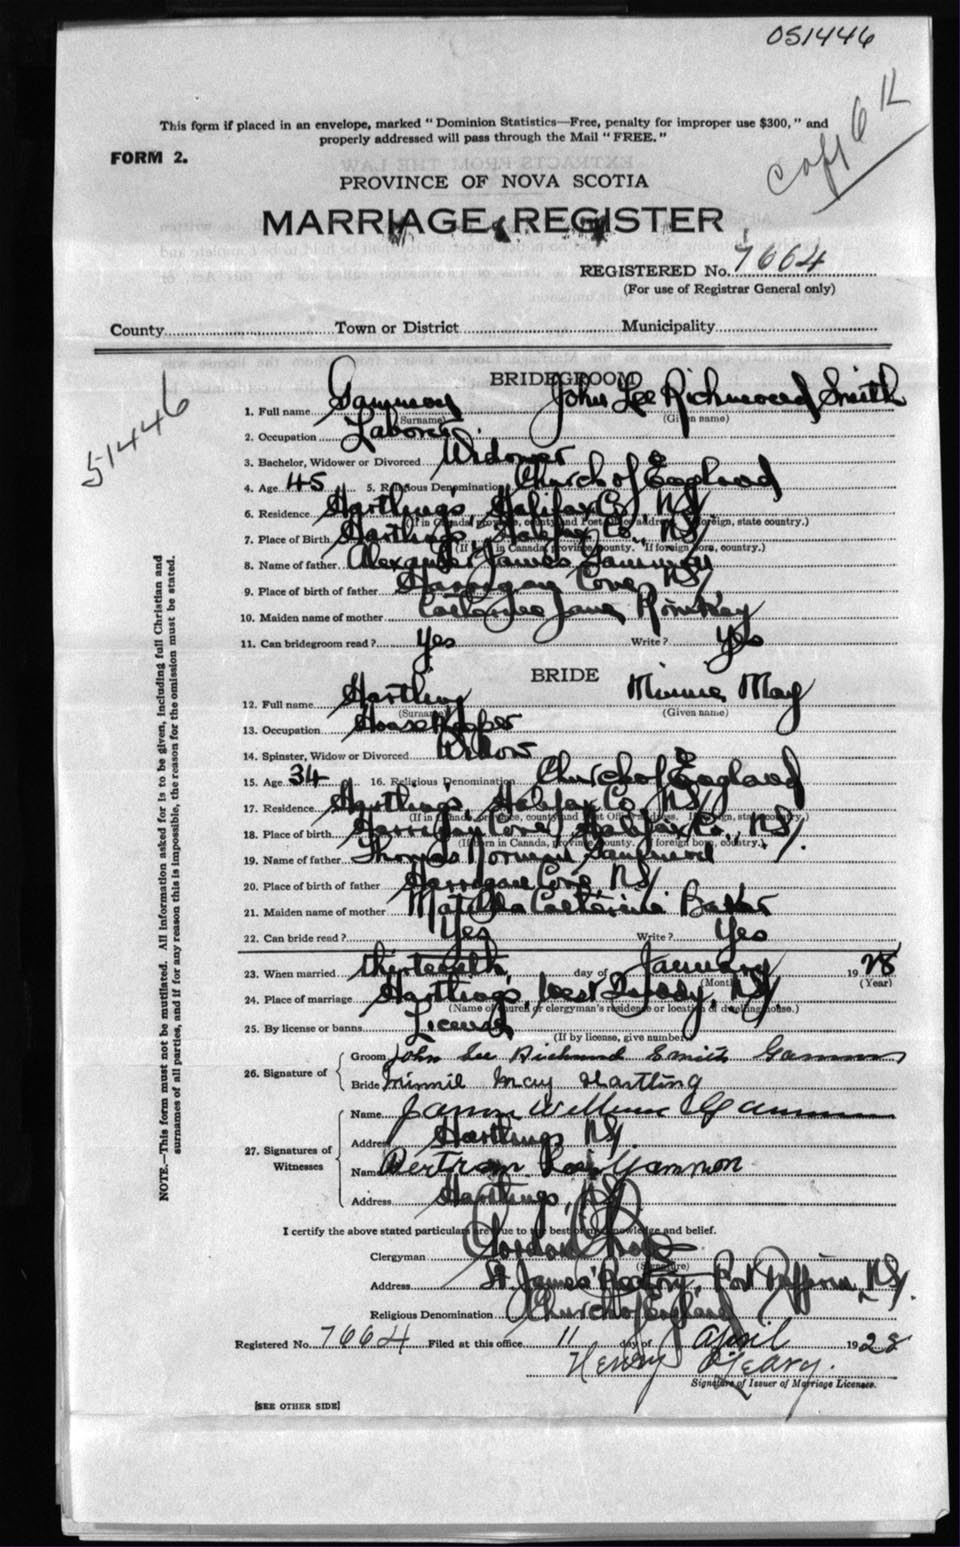 051446
Copy 6 K
This form if placed in an envelope, marked "Dominion Statistics—Free, penalty for improper use $300," and
properly addressed will pass through the Mail "FREE."
FORM 2.
PROVINCE OF NOVA SCOTIA
MARRIAGE REGISTER
REGISTERED No. 7664
(For use of Registrar General only)
County Town or District Municipality
51446
BRIDEGROOM
1. Full name Gammon John Lee Richmond Smith
(Surname) (Given name)
2. Occupation Laborer
3. Bachelor, Widower or Divorced Widower
4. Age 45 5. Religious Denomination Church of England
6. Residence Hartling's, Halifax Co., NS/
(If in Canada, province, county and Post Office address. If foreign, state country.)
7. Place of Birth Hartlings, Halifax Co., NS/
(If born in Canada, province, county. If foreign born, country.)
8. Name of father Alexander James Gammon
9. Place of birth of father Harrigan Cove, NS/
10. Maiden name of mother Catherine Jane
11. Can bridegroom read? Yes Write? Yes
BRIDE
12. Full name Hartling Minnie May
(Surname) (Given name)
13. Occupation Housekeeper
14. Spinster, Widow or Divorced Widow
15. Age 34 16. Religious Denomination Church of England
17. Residence Hartling's, Halifax Co., NS/
(If in Canada, province, county and Post Office address. If foreign, state country.)
18. Place of birth Harrigan Cove, Halifax Co., NS/.
(If born in Canada, province, county. If foreign born, country.)
19. Name of father Thomas Norman
20. Place of birth of father Harrogan Cove, NS/
21. Maiden name of mother Matilda Catherine Baker
22. Can bride read? Yes Write? Yes
23. When married thirteenth day of January 1928
(Month) (Year)
24. Place of marriage Hartling's, West Quoddy, NS/.
(Name of church or clergyman's residence or location of dwelling house.)
25. By license or banns License
(If by license, give number)
26. Signature of
Groom John Lee Richmond Smith Gammon
Bride Minnie May Hartling
27. Signatures of Witnesses
Name James William Gammon
Address Hartlings NS/.
Name Bertram Gammon
Address Hartlings, NS/
I certify the above stated particulars are true to the best of my knowledge and belief.
Clergyman Gordon
(Signature)
Address St. James' Rectory, Port Dufferin, NS/.
Religious Denomination Church of England
Registered No. 7664 Filed at this office 11 day of April 1928
Henry O'Leary.
Signature of Issuer of Marriage Licenses.
[SEE OTHER SIDE]
NOTE.—This form must not be mutilated. All information asked for is to be given, including full Christian and
surnames of all parties, and if for any reason this is impossible, the reason for the omission must be stated.